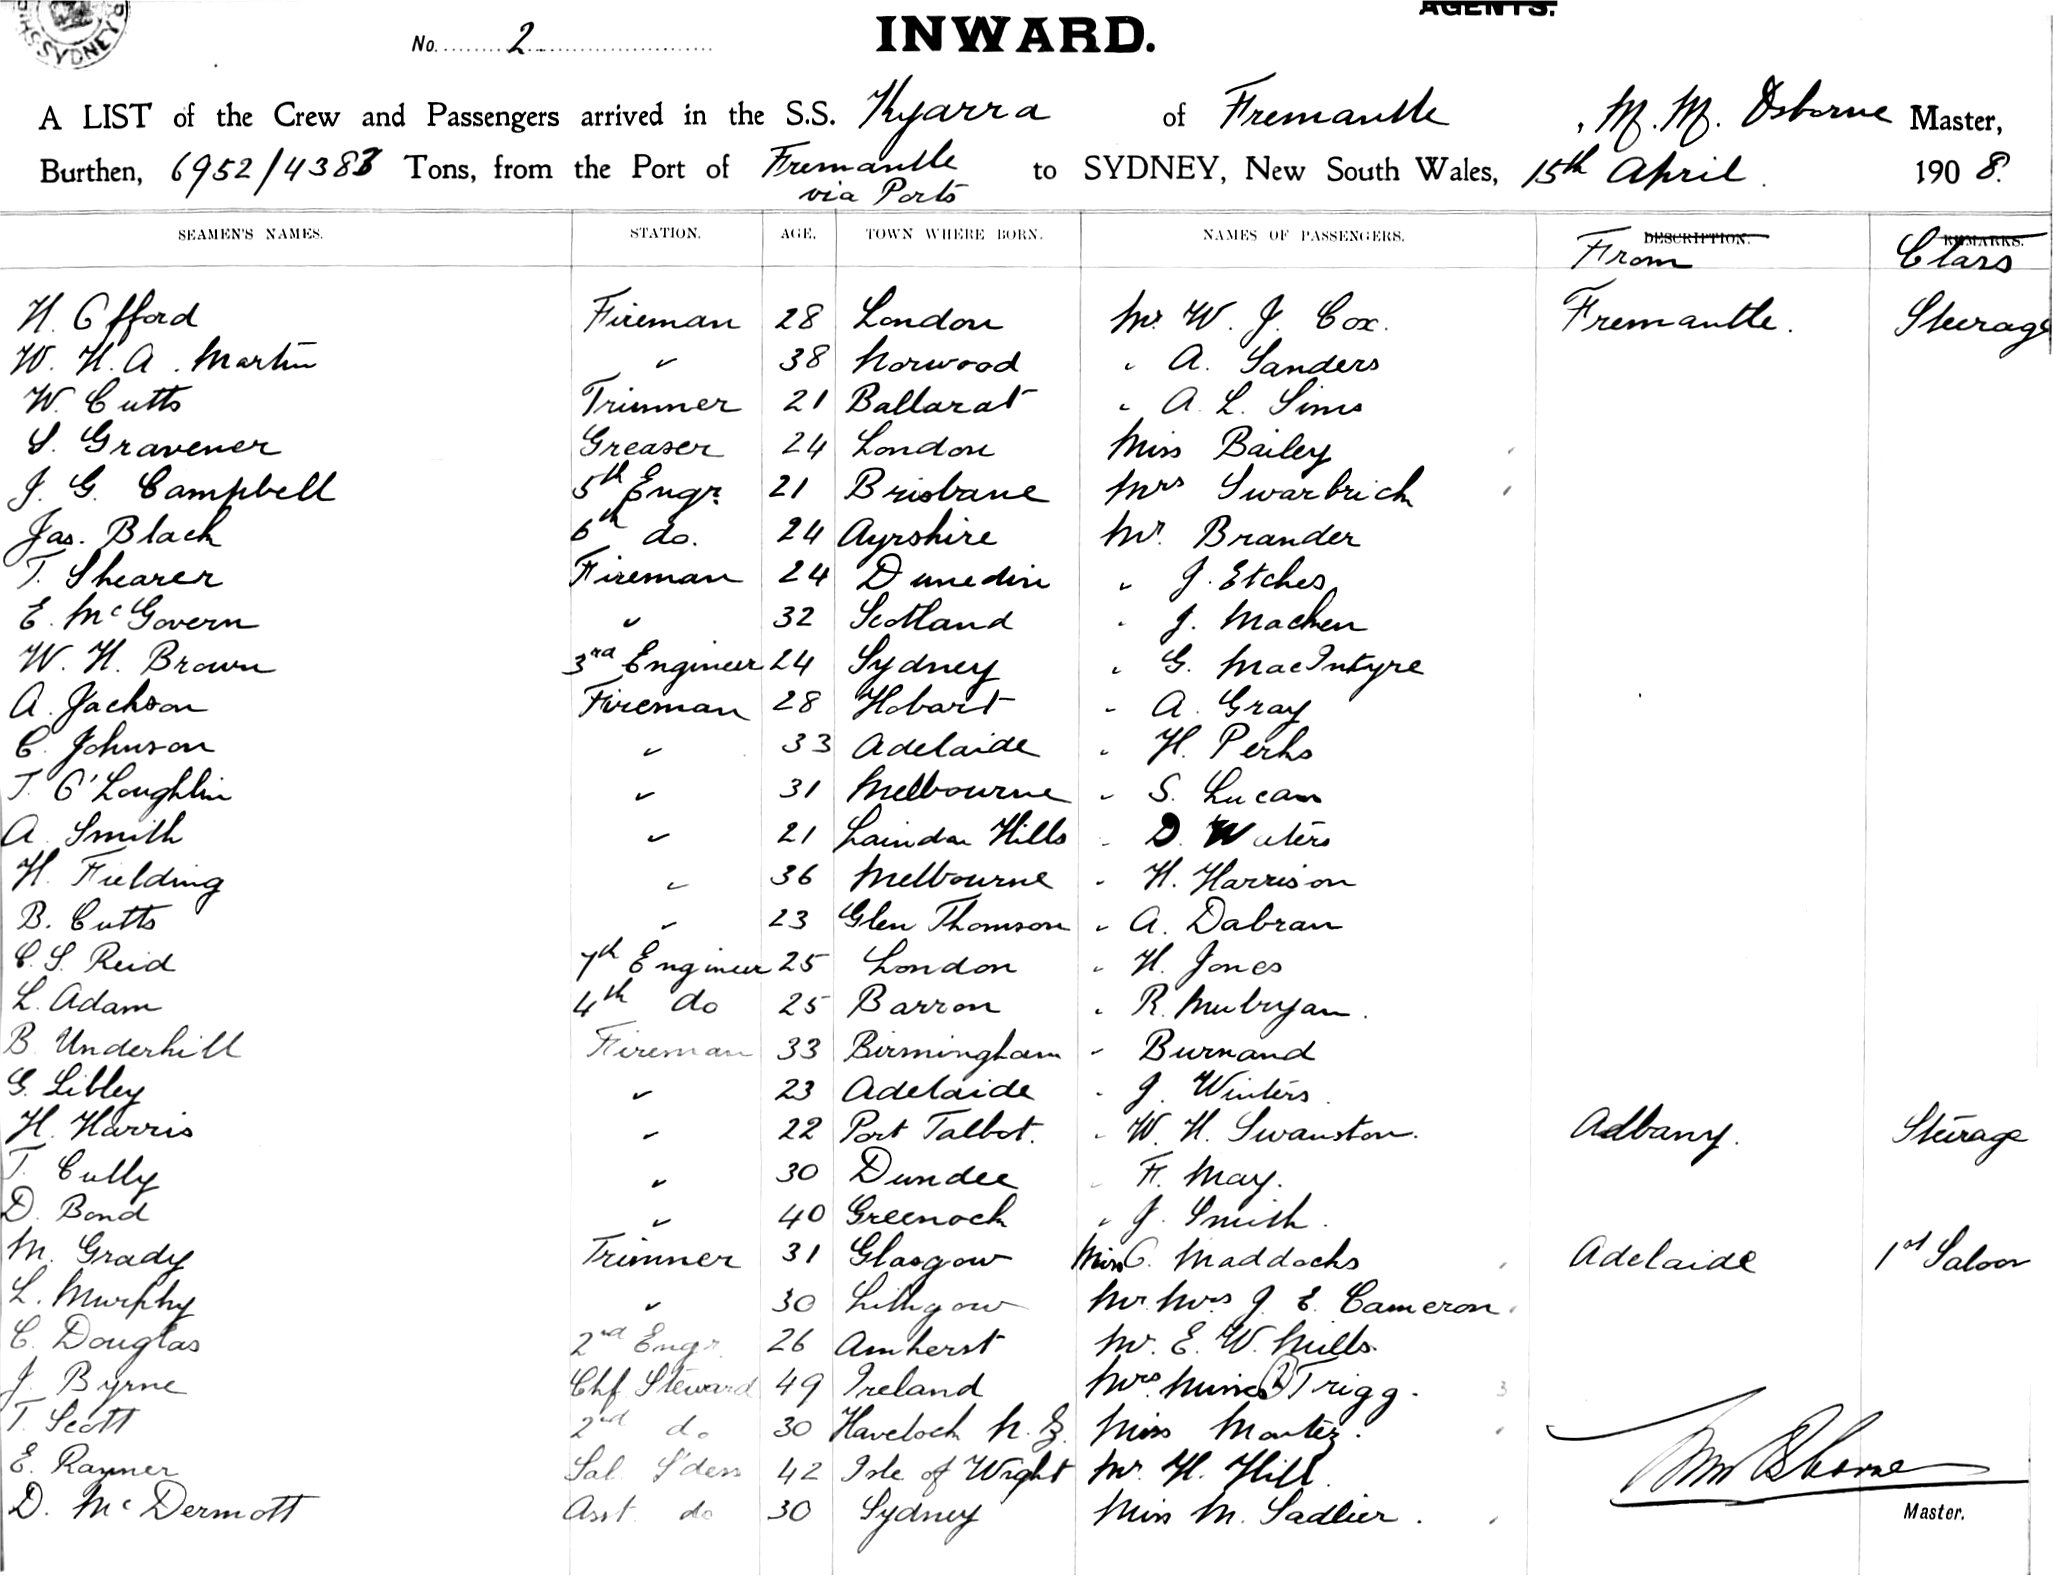 AGENTS.
SYDNEY
No. 2
INWARD.
A LIST of the Crew and Passengers arrived in the S.S. Kyarra of Fremantle, M. M. Osborne Master,
Burthen, 6952/4383 Tons, from the Port of Fremantle via Ports to SYDNEY, New South Wales, 15th April 1908.
SEAMEN'S NAMES. STATION. AGE. TOWN WHERE BORN. NAMES OF PASSENGERS. DESCRIPTION. From REMARKS. Class
H. Offord Fireman 28 London Mr. W. J. Cox. Fremantle. Steerage
W. H. A. Martin " 38 Norwood " A. Sanders
W. Cutts Trimmer 21 Ballarat " A. L. Sims
S. Gravener Greaser 24 London Miss Bailey
J. G. Campbell 5th Engr. 21 Brisbane Mrs Swarbrick
Jas. Black 6th do. 24 Ayrshire Mr. Brander
T. Shearer Fireman 24 Dunedin " J. Etches
E. McGovern " 32 Scotland " J. Machen
W. H. Brown 3rd Engineer 24 Sydney " G. MacIntyre
A. Jackson Fireman 28 Hobart " A. Gray
C. Johnson " 33 Adelaide " H. Perks
T. O'Loughlin " 31 Melbourne " S. Lucas
A. Smith " 21 Laindon Hills " D. Waters
H. Fielding " 36 Melbourne " H. Harrison
B. Cutts " 23 Glen Thomson " A. Dabran
C. S. Reid 7th Engineer 25 London " H. Jones
L. Adam 4th do 25 Barron " R.
B. Underhill Fireman 33 Birmingham " Burnand
G. Libley " 23 Adelaide " J. Winters.
H. Harris " 22 Port Talbot. " W. H. Swanston. Adbany. Steerage
T. Cully " 30 Dundee " F. May.
D. Bond " 40 Greenock " J. Smith.
M. Grady Trimmer 31 Glasgow Miss C. Maddocks Adelaide 1st Saloon
L. Murphy " 30 Lithgow Mr. Mrs J. E. Cameron
C. Douglas 2nd Engr. 26 Amherst Mr. E. W. Mills.
J. Byrne Chf Steward 49 Ireland Mrs. Misses (2) Trigg. 3
T. Scott 2nd do 30 Havelock N.Z. Miss
E. Rayner Sal. S'dess 42 Isle of Wight Mr. H. Hill.
D. McDermott Asst do 30 Sydney Miss M. Sadlier.
Osborne
Master.